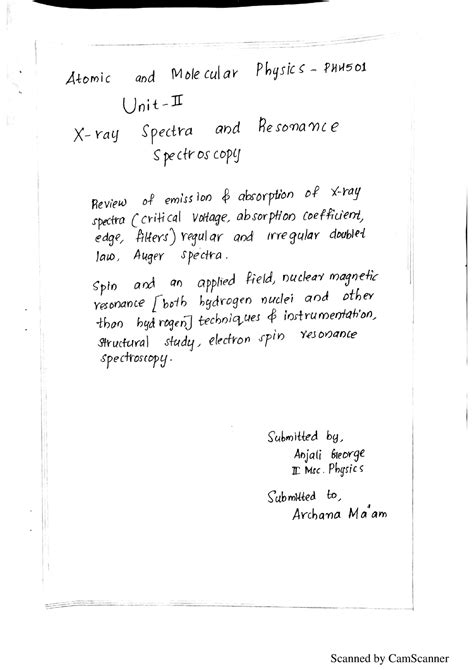 Atomic and Molecular Physics - PHH501
Unit-II
X-ray Spectra and Resonance
Spectroscopy
Review of emission & absorption of X-ray
spectra (critical voltage, absorption coefficient,
edge, filters) regular and irregular doublet
law, Auger spectra.
Spin and an applied field, nuclear magnetic
resonance [both hydrogen nuclei and other
than hydrogen] techniques & instrumentation,
structural study, electron spin resonance
spectroscopy.
Submitted by,
Anjali George
II Msc. Physics
Submitted to,
Archana Ma'am
Scanned by CamScanner